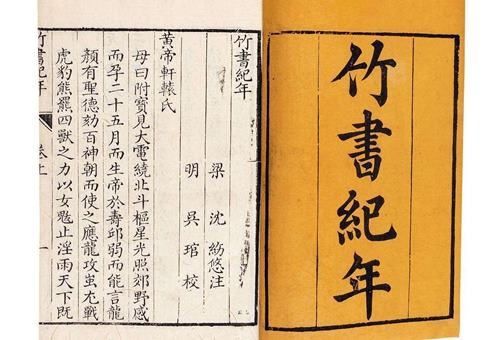 竹書紀年
竹書紀年
梁 沈 約 注
明 吳 琯 校
黃帝軒轅氏
母曰附寶見大電繞北斗樞星光照郊野感
而孕二十五月而生帝於壽邱弱而能言龍
顏有聖德劾百神朝而使之應龍攻蚩尤戰
虎豹熊羆四獸之力以女魃止淫雨天下既
竹書紀年 卷上